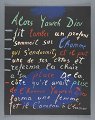 Alors Yahvé Dieu
fit tomber un profond
sommeil sur l'homme
qui s'endormit, et il prit
une de ses côtes et
referma la chair
à sa place. De la
côte qu'il avait prise
de l'homme Yahvé Dieu
forma une femme
et l'amena à l'homme